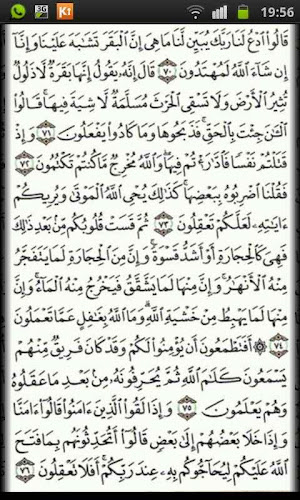 19:56
قَالُوا۟ ٱدْعُ لَنَا رَبَّكَ يُبَيِّن لَّنَا مَا هِىَ إِنَّ ٱلْبَقَرَ تَشَٰبَهَ عَلَيْنَا وَإِنَّآ
إِن شَآءَ ٱللَّهُ لَمُهْتَدُونَ ٧٠ قَالَ إِنَّهُۥ يَقُولُ إِنَّهَا بَقَرَةٌ لَّا ذَلُولٌ
تُثِيرُ ٱلْأَرْضَ وَلَا تَسْقِى ٱلْحَرْثَ مُسَلَّمَةٌ لَّا شِيَةَ فِيهَا ۚ قَالُوا۟
ٱلْـَٰٔنَ جِئْتَ بِٱلْحَقِّ ۚ فَذَبَحُوهَا وَمَا كَادُوا۟ يَفْعَلُونَ ٧١ وَإِذْ
قَتَلْتُمْ نَفْسًا فَٱدَّٰرَْٰٔتُمْ فِيهَا ۖ وَٱللَّهُ مُخْرِجٌ مَّا كُنتُمْ تَكْتُمُونَ ٧٢
فَقُلْنَا ٱضْرِبُوهُ بِبَعْضِهَا ۚ كَذَٰلِكَ يُحْىِ ٱللَّهُ ٱلْمَوْتَىٰ وَيُرِيكُمْ
ءَايَٰتِهِۦ لَعَلَّكُمْ تَعْقِلُونَ ٧٣ ثُمَّ قَسَتْ قُلُوبُكُم مِّنۢ بَعْدِ ذَٰلِكَ
فَهِىَ كَٱلْحِجَارَةِ أَوْ أَشَدُّ قَسْوَةً ۚ وَإِنَّ مِنَ ٱلْحِجَارَةِ لَمَا يَتَفَجَّرُ
مِنْهُ ٱلْأَنْهَٰرُ ۚ وَإِنَّ مِنْهَا لَمَا يَشَّقَّقُ فَيَخْرُجُ مِنْهُ ٱلْمَآءُ ۚ وَإِنَّ
مِنْهَا لَمَا يَهْبِطُ مِنْ خَشْيَةِ ٱللَّهِ ۗ وَمَا ٱللَّهُ بِغَٰفِلٍ عَمَّا تَعْمَلُونَ
٧٤ ۞ أَفَتَطْمَعُونَ أَن يُؤْمِنُوا۟ لَكُمْ وَقَدْ كَانَ فَرِيقٌ مِّنْهُمْ
يَسْمَعُونَ كَلَٰمَ ٱللَّهِ ثُمَّ يُحَرِّفُونَهُۥ مِنۢ بَعْدِ مَا عَقَلُوهُ
وَهُمْ يَعْلَمُونَ ٧٥ وَإِذَا لَقُوا۟ ٱلَّذِينَ ءَامَنُوا۟ قَالُوٓا۟ ءَامَنَّا
وَإِذَا خَلَا بَعْضُهُمْ إِلَىٰ بَعْضٍ قَالُوٓا۟ أَتُحَدِّثُونَهُم بِمَا فَتَحَ
ٱللَّهُ عَلَيْكُمْ لِيُحَآجُّوكُم بِهِۦ عِندَ رَبِّكُمْ ۚ أَفَلَا تَعْقِلُونَ ٧٦